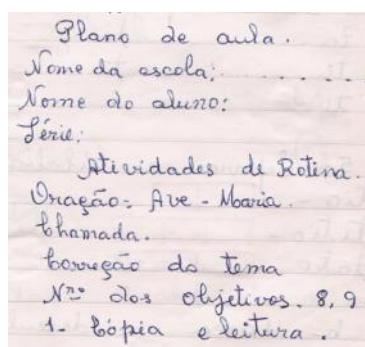 Plano de aula.
Nome da escola: . . . . .
Nome do aluno:
Série:
Atividades de Rotina.
Oração: Ave - Maria.
Chamada.
Correção do tema
Nº dos objetivos. 8, 9
1- Cópia e leitura.